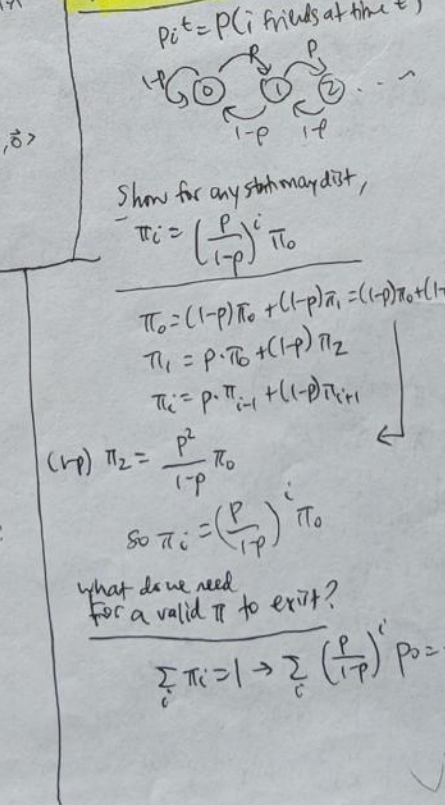 ,0⃗>
p_i^t = P(i friends at time t)
1-p 0 p 1 p 2 ...
1-p 1-p
Show for any stationary dist,
π_i = (p/(1-p))^i π_0
π_0 = (1-p)π_0 + (1-p)π_1 = (1-p)π_0 + (1-
π_1 = p·π_0 + (1-p)π_2
π_i = p·π_{i-1} + (1-p)π_{i+1}
(1-p) π_2 = p²/(1-p) π_0
so π_i = (p/(1-p))^i π_0
what do we need
for a valid π to exist?
Σ_i π_i = 1 → Σ_i (p/(1-p))^i p_0 =